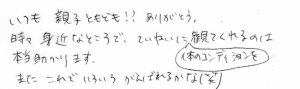 いつも 親子ともども!! ありがとう。
時々 身近なところで、ていねいに観てくれるのは
本当助かります。 体のコンディションを
また これで いろいろ がんばれるかな(笑)